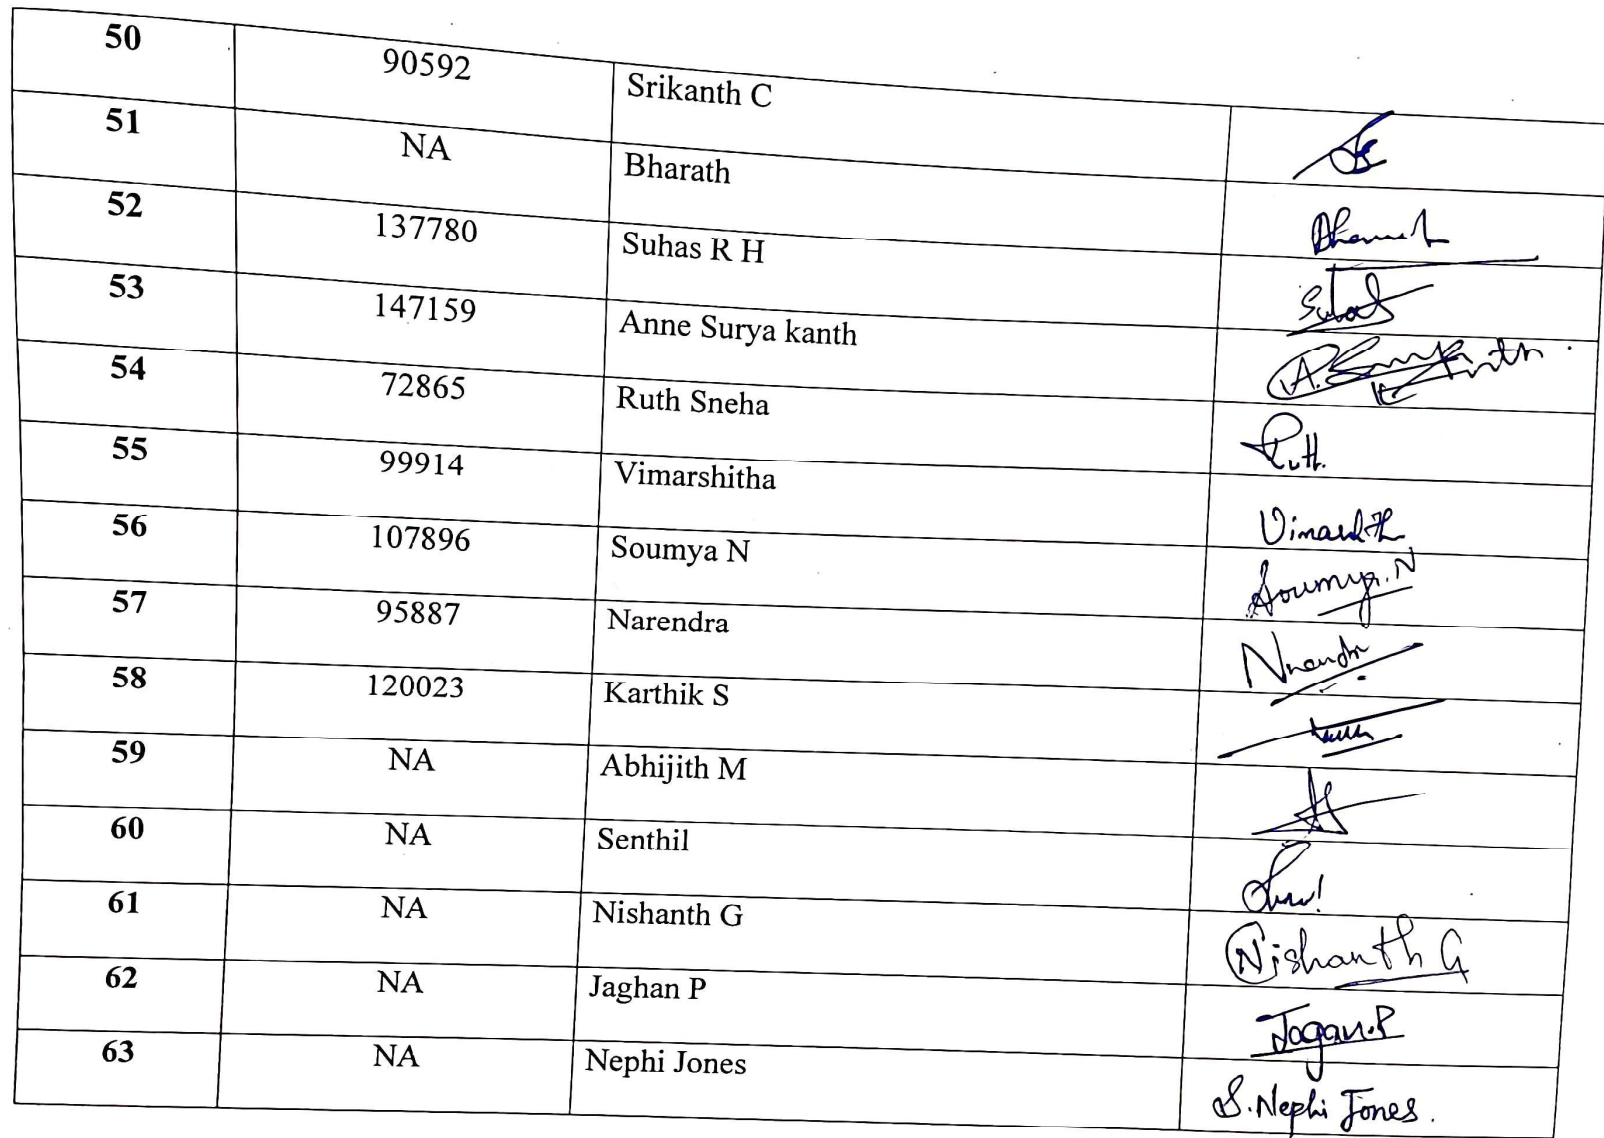 50 90592 Srikanth C
51 NA Bharath
52 137780 Suhas R H Suhas
53 147159 Anne Surya kanth
54 72865 Ruth Sneha Ruth.
55 99914 Vimarshitha
56 107896 Soumya N Soumya.N
57 95887 Narendra
58 120023 Karthik S
59 NA Abhijith M
60 NA Senthil
61 NA Nishanth G Nishanth G
62 NA Jaghan P Jagan.P
63 NA Nephi Jones S.Nephi Jones.